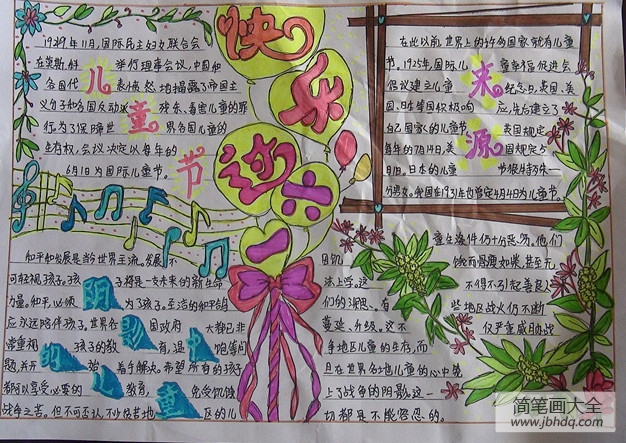 快乐过六一
儿童节
1949年11月,国际民主妇女联合会
在莫斯科举行理事会议,中国和
各国代表愤然地揭露了帝国主
义分子和各国反动派残杀、毒害儿童的罪
行为了保障世界各国儿童的
生存权,会议决定以每年的
6月1日为国际儿童节。
来源
在此以前,世界上的许多国家就有儿童
节。1925年,国际儿童幸福促进会
倡议建立儿童纪念日,英国、美
国、日本等国积极响应,先后建立了
自己国家的儿童节。英国规定
每年的7月14,美国规定5
月1日。日本的儿童节很特殊一
历男女。我国在1931年也曾定4月4日为儿童节。
和平和发展是当今世界主流。发展不
可轻视孩子。孩子将是一支未来的新生命
力量。和平,必须为孩子。至洁的和平鸽
应永远陪伴孩子。世界各国政府大都已非
常重视孩子的教育,温饱等问
题,并开始着手解决。希望所有的孩子
都可以享受必要的教育,免受饥饿
战争之苦。但不可否认,不少贫苦地区的儿
童生活条件仍十分恶劣。他们
饿而骨瘦如柴,甚至无
法上学。这不得不引起善良人
们的深思。有些地区战火仍不断
蔓延、升级。这不仅严重威胁战
争地区儿童的生存,而
且在世界各地儿童的心中蒙
上了战争的阴影。这一
切都是不能容忍的。
阴影
儿童
简笔画大全
www.jbhdq.com